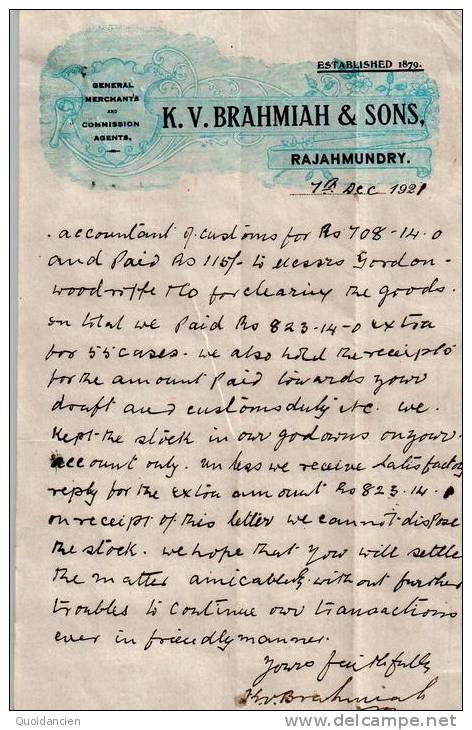 ESTABLISHED 1879.
GENERAL
MERCHANTS
AND
COMMISSION
AGENTS,
K. V. BRAHMIAH & SONS,
RAJAHMUNDRY.
7th Dec 1921
accountant of customs for Rs 708-14-0
and Paid Rs 115/- to Messrs Gordon-
woodroffe & Co for clearing the goods.
In total we Paid Rs 823-14-0 extra
for 55 cases. we also hold the receipts
for the amount Paid towards your
draft and customs duty etc. we
kept the stock in our godowns on your
account only. unless we receive satisfactory
reply for the extra amount Rs 823-14-
on receipt of this letter we cannot dispose
the stock. we hope that you will settle
the matter amicably without further
troubles to continue our transactions
ever in friendly manner.
yours faithfully
K.V. Brahmiah
Quoidancien
www.delcampe.net